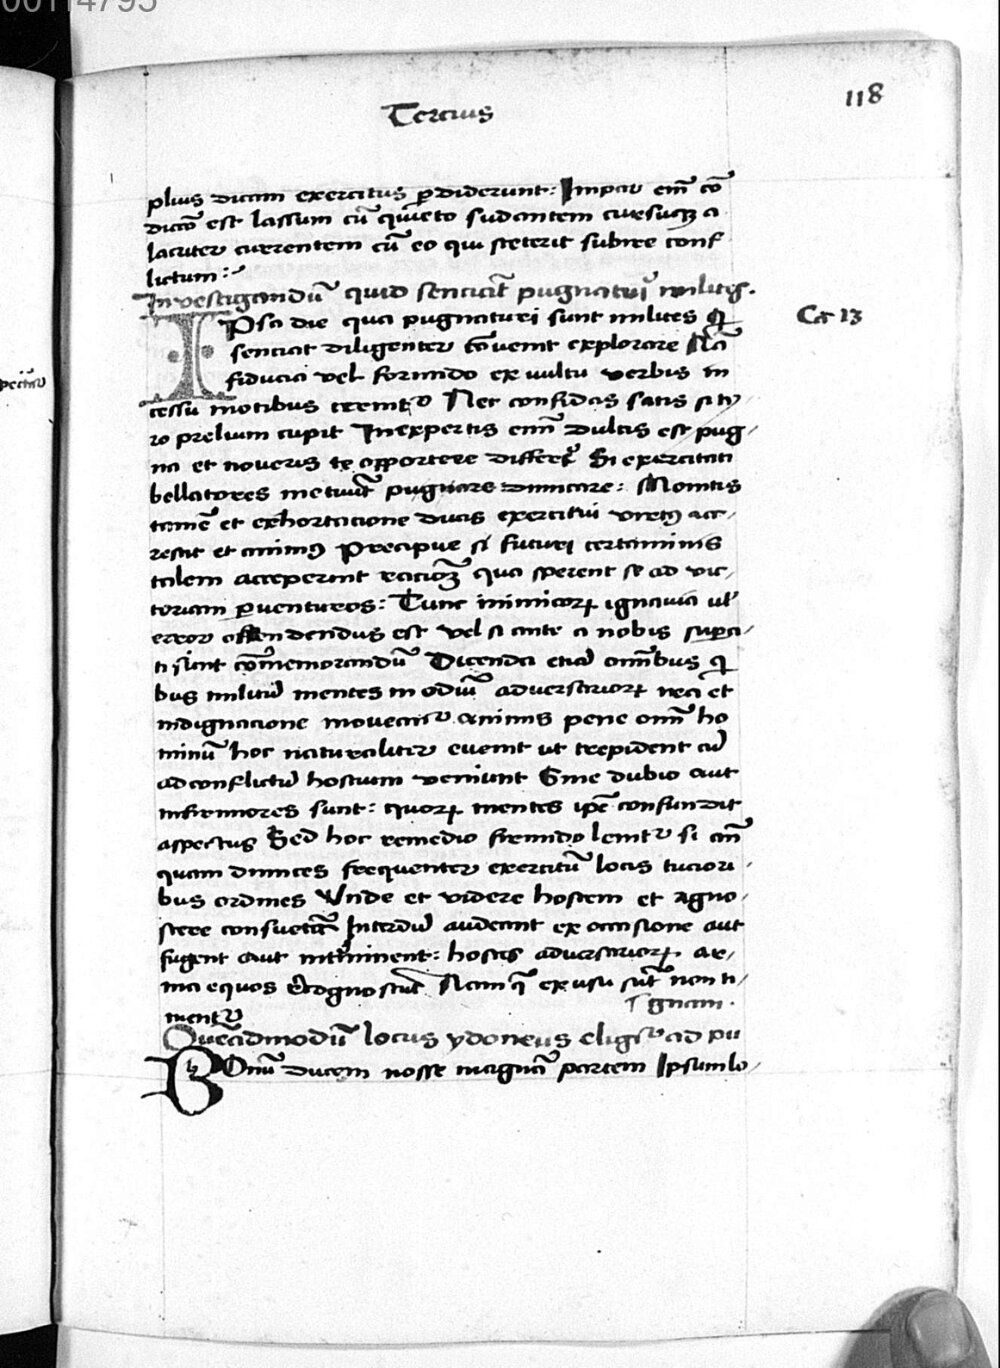 00114795
118
Tercius
plius dicam exercitus ꝑdiderunt: Impar em̅ co̅
dicio̅ est lassum cu̅ quieto sudantem cursuqꝫ a
lacriter currentem cu̅ eo qui steterit subire conf
lictum:
Investigandu̅ quid senciat pugnaturi milites.
IPsa die qua pugnaturi sunt milites q̅
Ca 13
senciat diligenter co̅venit explorare Na̅
fiducia vel formido ex vultu verbis in
cessu motibus cernit᷑ Nec confidas satis si ty/
ro prelium cupit Inexpertis enim̅ dulcis est pug/
na et noveris te opportere differe᷑ Si exercitati
bellatores metuu̅t pugnare dimicare: Monitis
tame̅ et exhortacione ducis exercitui virtꝰ ac/
rescit et animꝰ Precipue si futuri certaminis
talem acceperint racio̅ꝫ qua sperent se ad vic/
toriam ꝑventuros: Tunc inimicoꝝ ignavia ul᷑
error ostendendus est vel si ante a nobis suꝑa/
ti sunt co̅memorandu̅ Dicenda etia̅ om̅ibus q̅
bus militu̅ mentes in odiu̅ adversarioꝝ neci et
indignacione moveat᷑ animis pene om̅ ho
minu̅ hoc naturaliter evenit ut trepident cu̅
ad conflictu̅ hostium veniunt Sine dubio aut
infirmiores sunt: quoꝝ mentes ip̅e confundit
aspectus Sed hoc remedio formido lenit᷑ si an̅
quam dimices frequenter exercitu̅ locis tuciori/
bus ordines Unde et videre hostem et agno/
scere consueta̅t Interdu̅ audeant ex occasione aut
fugent aut int᷑iminent: hostes adversarioꝝ ar/
ma equos recognosca̅t Nam q̅ ex usu su̅t non ti/
ment᷑
gnam.
Que̅admodu̅ locus ydoneus eligit᷑ ad pu
BOnu̅ ducem nosse magna̅ partem Ipsum lo/